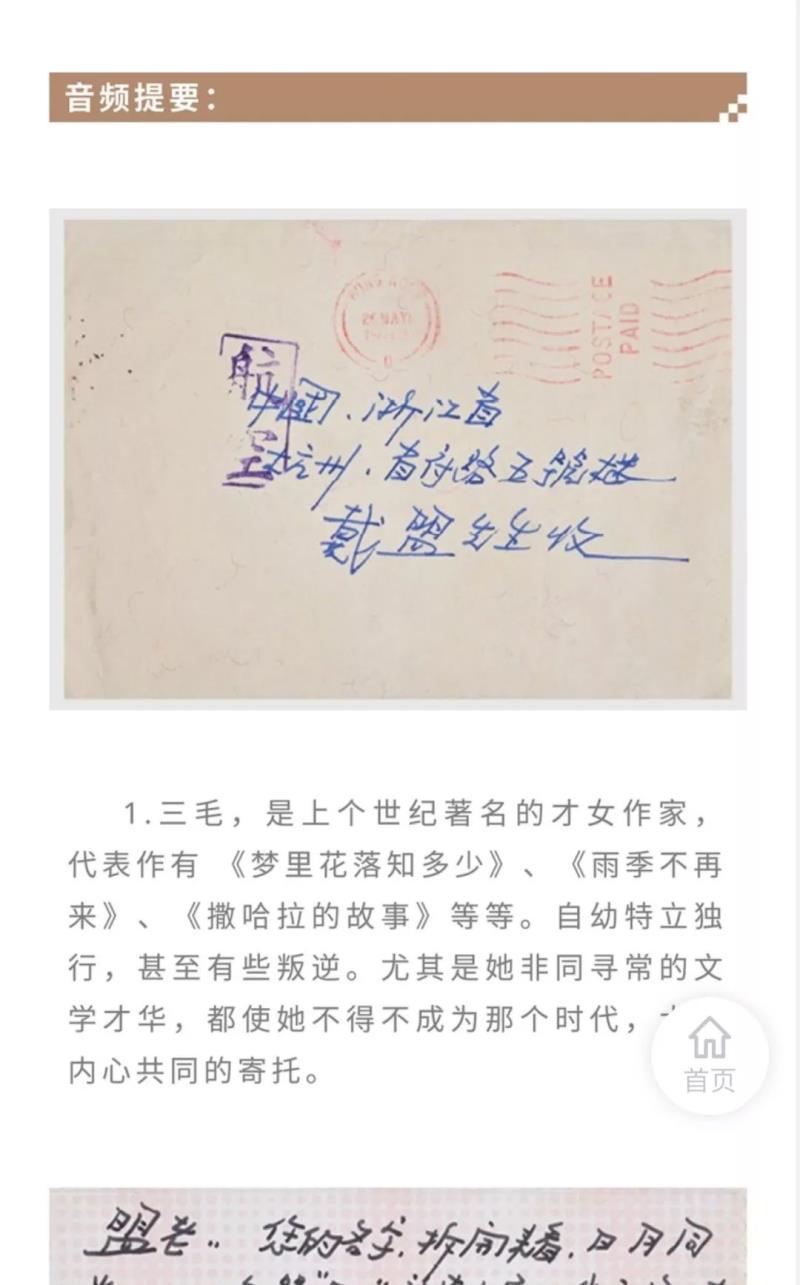 音频提要：
HONG KONG
26 MAY
POSTAGE
PAID
航空
中国．浙江省
杭州．省府路五号楼
戴盟先生收
1.三毛，是上个世纪著名的才女作家，
代表作有 《梦里花落知多少》、《雨季不再
来》、《撒哈拉的故事》等等。自幼特立独
行，甚至有些叛逆。尤其是她非同寻常的文
学才华，都使她不得不成为那个时代，
内心共同的寄托。
首页
盟老：您的名字，拆开来看，日月同